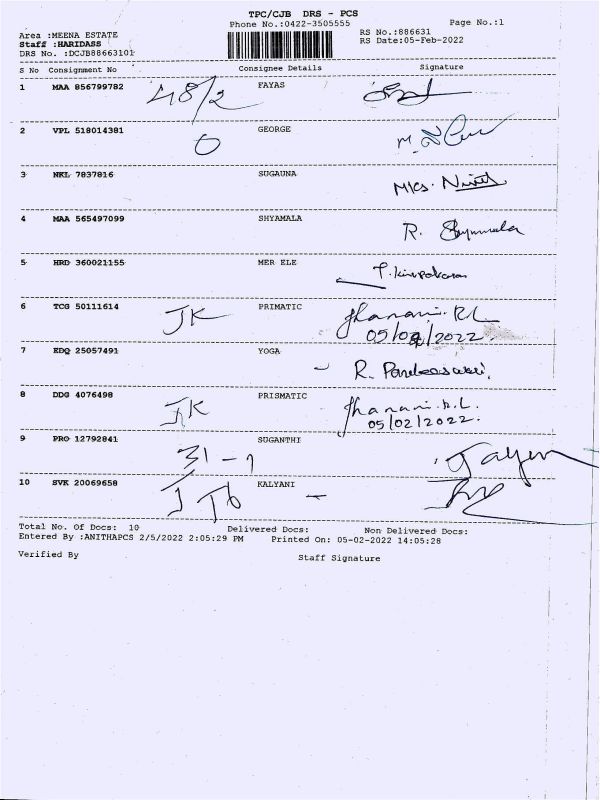 TPC/CJB DRS - PCS
Phone No.:0422-3505555 Page No.:1
Area :MEENA ESTATE RS No.:886631
Staff :HARIDASS RS Date:05-Feb-2022
DRS No. :DCJB88663101
S No Consignment No Consignee Details Signature
1 MAA 856799782 48/2 FAYAS
2 VPL 518014381 GEORGE
3 NKL 7837816 SUGAUNA
4 MAA 565497099 SHYAMALA R. Shyamala
5 HRD 360021155 MER ELE
6 TCG 50111614 JK PRIMATIC Jhanani.R.L
05/02/2022.
7 EDQ 25057491 YOGA
8 DDG 4076498 JK PRISMATIC Jhanani.R.L.
05/02/2022.
9 PRO 12792841 31-1 SUGANTHI
10 SVK 20069658 KALYANI
Total No. Of Docs: 10 Delivered Docs: Non Delivered Docs:
Entered By :ANITHAPCS 2/5/2022 2:05:29 PM Printed On: 05-02-2022 14:05:28
Verified By Staff Signature